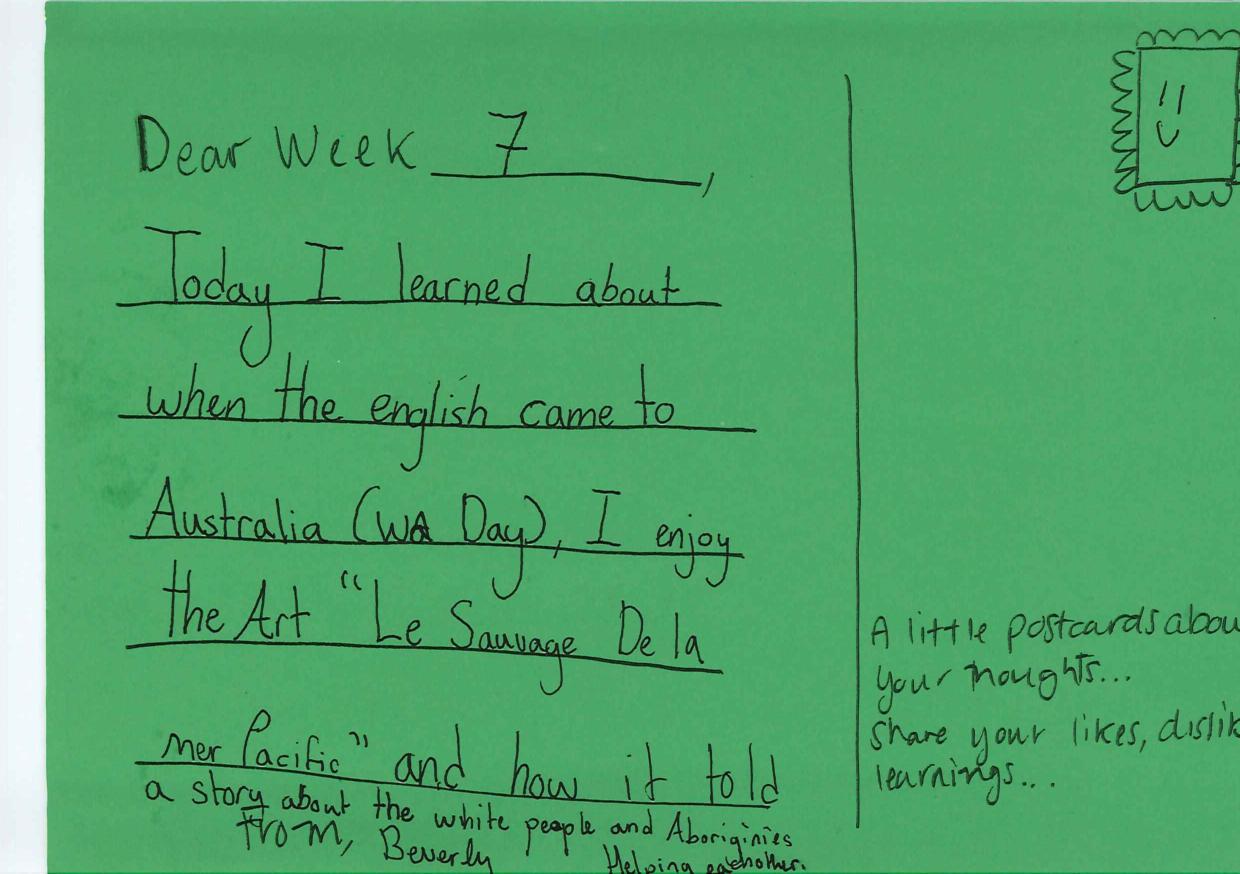 Dear Week 7,
Today I learned about
when the english came to
Australia (WA Day), I enjoy
the Art "Le Sauvage De la
mer Pacific" and how it told
a story about the white people and Aboriginies
Helping eachother.
From, Beverly
A little postcards abou
your thoughts...
share your likes, dislik
learnings...